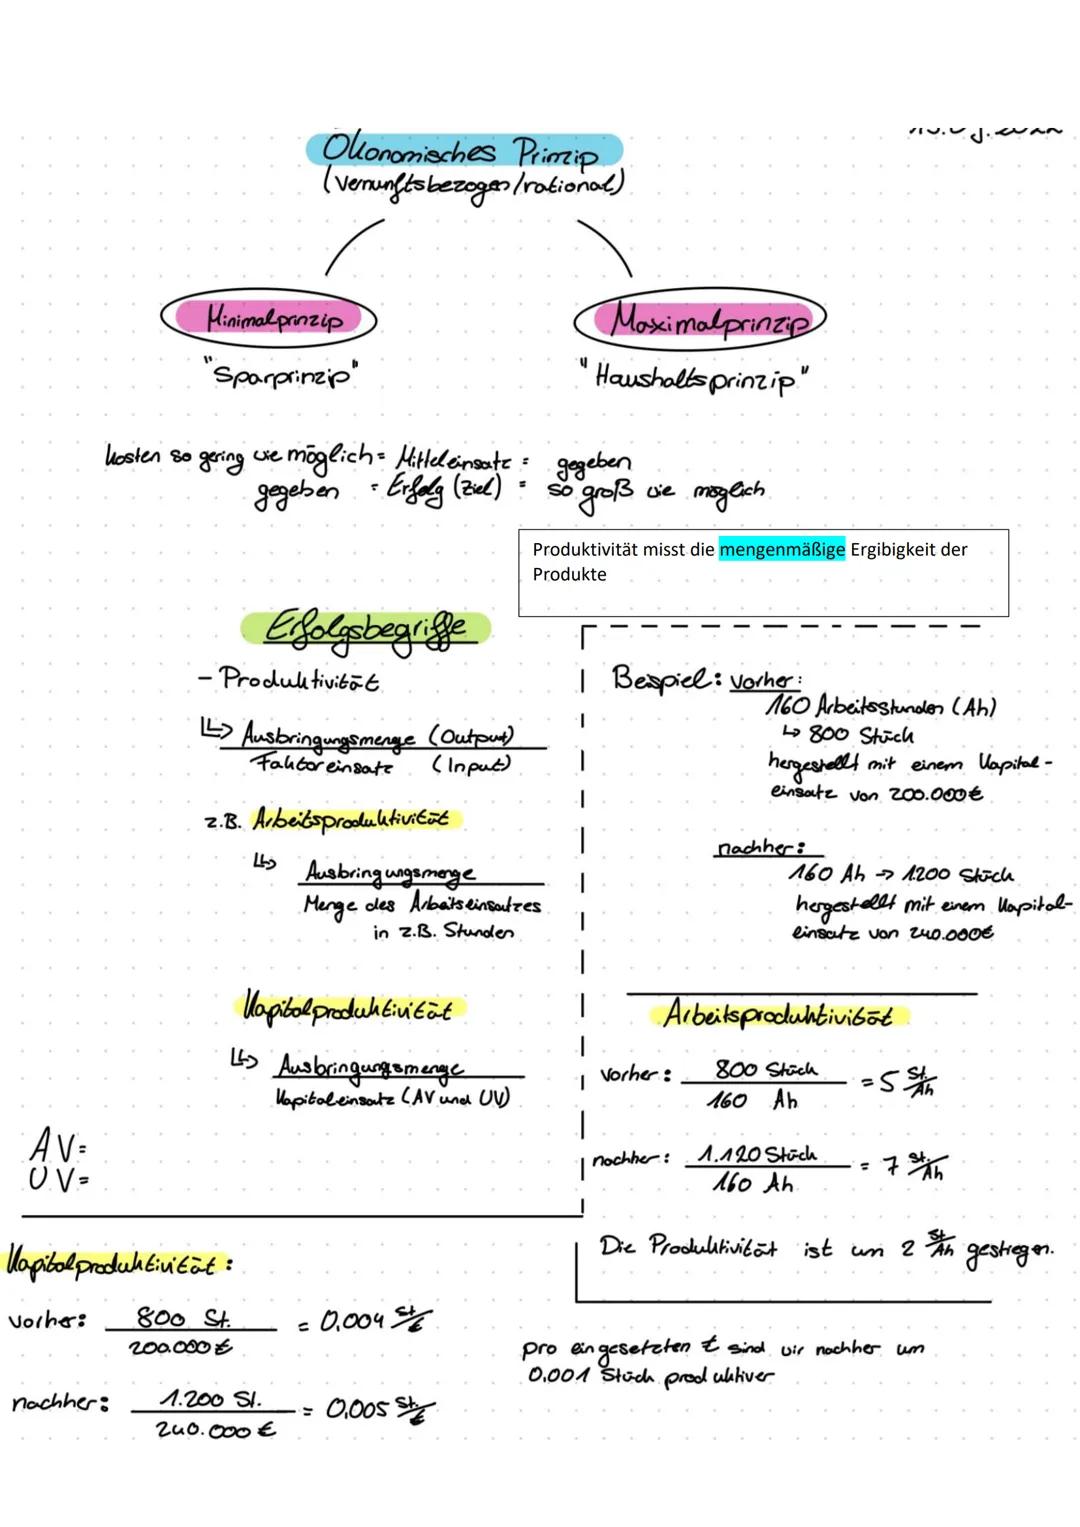 Ökonomisches Prinzip
(Vernunftsbezogen/rational)
Minimalprinzip
Maximalprinzip
"Sparprinzip"
"Haushaltsprinzip"
kosten so gering wie möglich = Mitteleinsatz = gegeben
gegeben = Erfolg (Ziel) = so groß wie möglich
Produktivität misst die mengenmäßige Ergibigkeit der
Produkte
Erfolgsbegriffe
- Produktivität
↳ Ausbringungsmenge (Output)
Faktoreinsatz (Input)
z.B. Arbeitsproduktivität
↳ Ausbringungsmenge
Menge des Arbeitseinsatzes
in z.B. Stunden
Kapitalproduktivität
↳ Ausbringungsmenge
Kapitaleinsatz (AV und UV)
AV=
UV=
Beispiel: vorher:
160 Arbeitsstunden (Ah)
↳ 800 Stück
hergestellt mit einem Kapital-
einsatz von 200.000€
nachher:
160 Ah → 1.200 Stück
hergestellt mit einem Kapital-
einsatz von 240.000€
Arbeitsproduktivität
vorher: 800 Stück / 160 Ah = 5 St./Ah
nachher: 1.120 Stück / 160 Ah = 7 St./Ah
Die Produktivität ist um 2 St./Ah gestiegen.
Kapitalproduktivität:
vorher: 800 St. / 200.000€ = 0,004 St./€
nachher: 1.200 St. / 240.000€ = 0,005 St./€
pro eingesetzten € sind wir nachher um
0,001 Stück produktiver